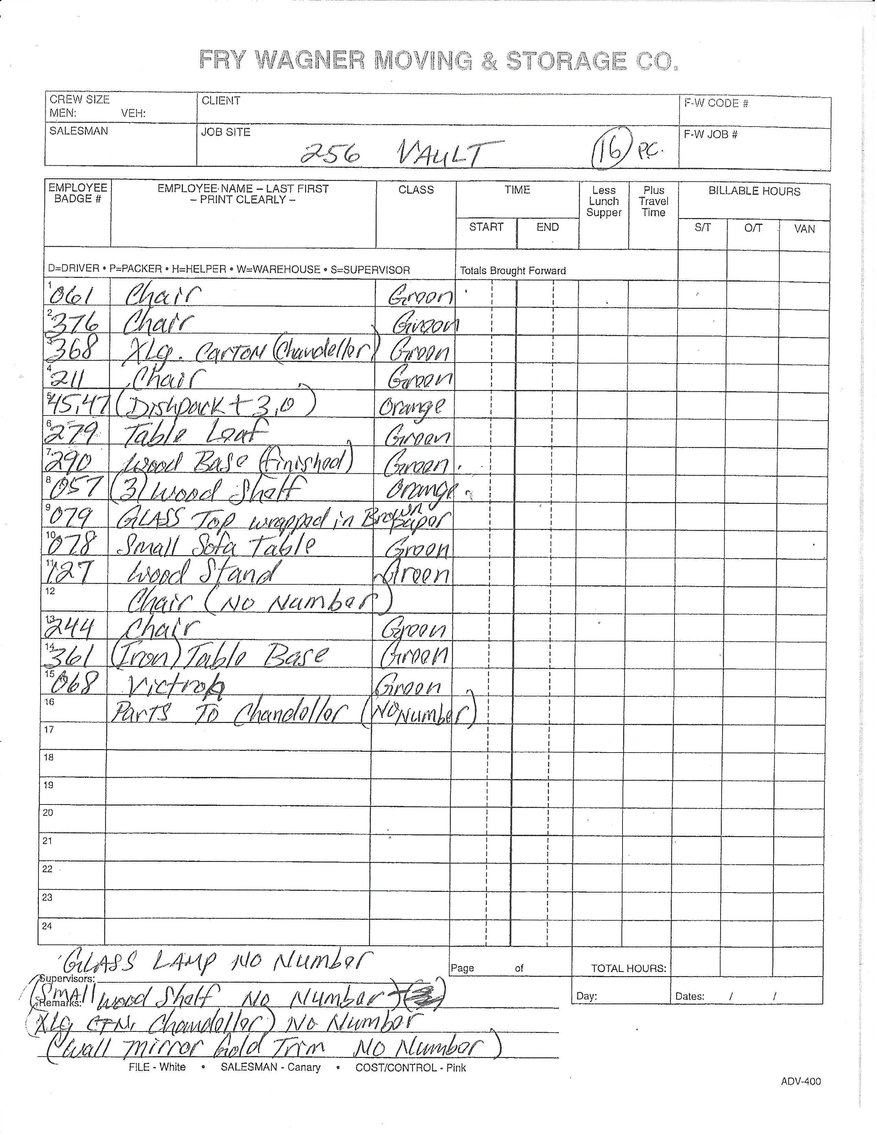 FRY WAGNER MOVING & STORAGE CO.
CREW SIZE
MEN: VEH:
CLIENT
F-W CODE #
SALESMAN
JOB SITE
F-W JOB #
256 VAULT (16) PC.
EMPLOYEE BADGE #
EMPLOYEE NAME – LAST FIRST
– PRINT CLEARLY –
CLASS
TIME
START END
Less Lunch Supper
Plus Travel Time
BILLABLE HOURS
S/T O/T VAN
D=DRIVER • P=PACKER • H=HELPER • W=WAREHOUSE • S=SUPERVISOR
Totals Brought Forward
1 061 Chair Green
2 376 Chair Green
3 368 XLg. CARTON (Chandeller) Green
4 211 Chair Green
5 45,47 (Dishpack + 3,0) Orange
6 279 Table Leaf Green
7 290 Wood Base (finished) Green
8 057 (3) Wood Shelf Orange
9 079 GLASS Top wrapped in Brown paper
10 078 Small Sofa Table Green
11 127 Wood Stand Green
12 Chair (NO Number)
13 244 Chair Green
14 361 (Iron) Table Base Green
15 068 Victrola Green
16 Parts To Chandeller (NO Number)
17
18
19
20
21
22
23
24
GLASS LAMP NO Number
Page of
TOTAL HOURS:
Supervisors:
Remarks:
(Small Wood Shelf NO Number)
Day:
Dates: / /
(XLg CTN, Chandeller) NO Number
(Wall Mirror Gold Trim NO Number)
FILE - White • SALESMAN - Canary • COST/CONTROL - Pink
ADV-400